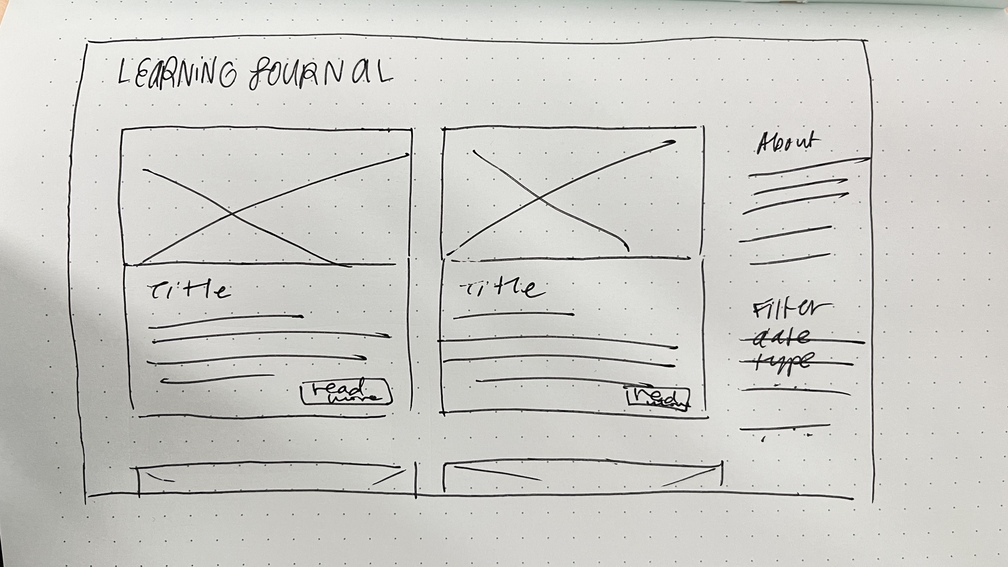 LEARNING JOURNAL
Title
read
more
Title
read
more
About
Filter
date
type